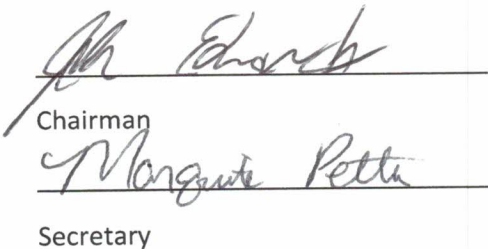 John Edwards
Chairman
Marguite Pettu
Secretary